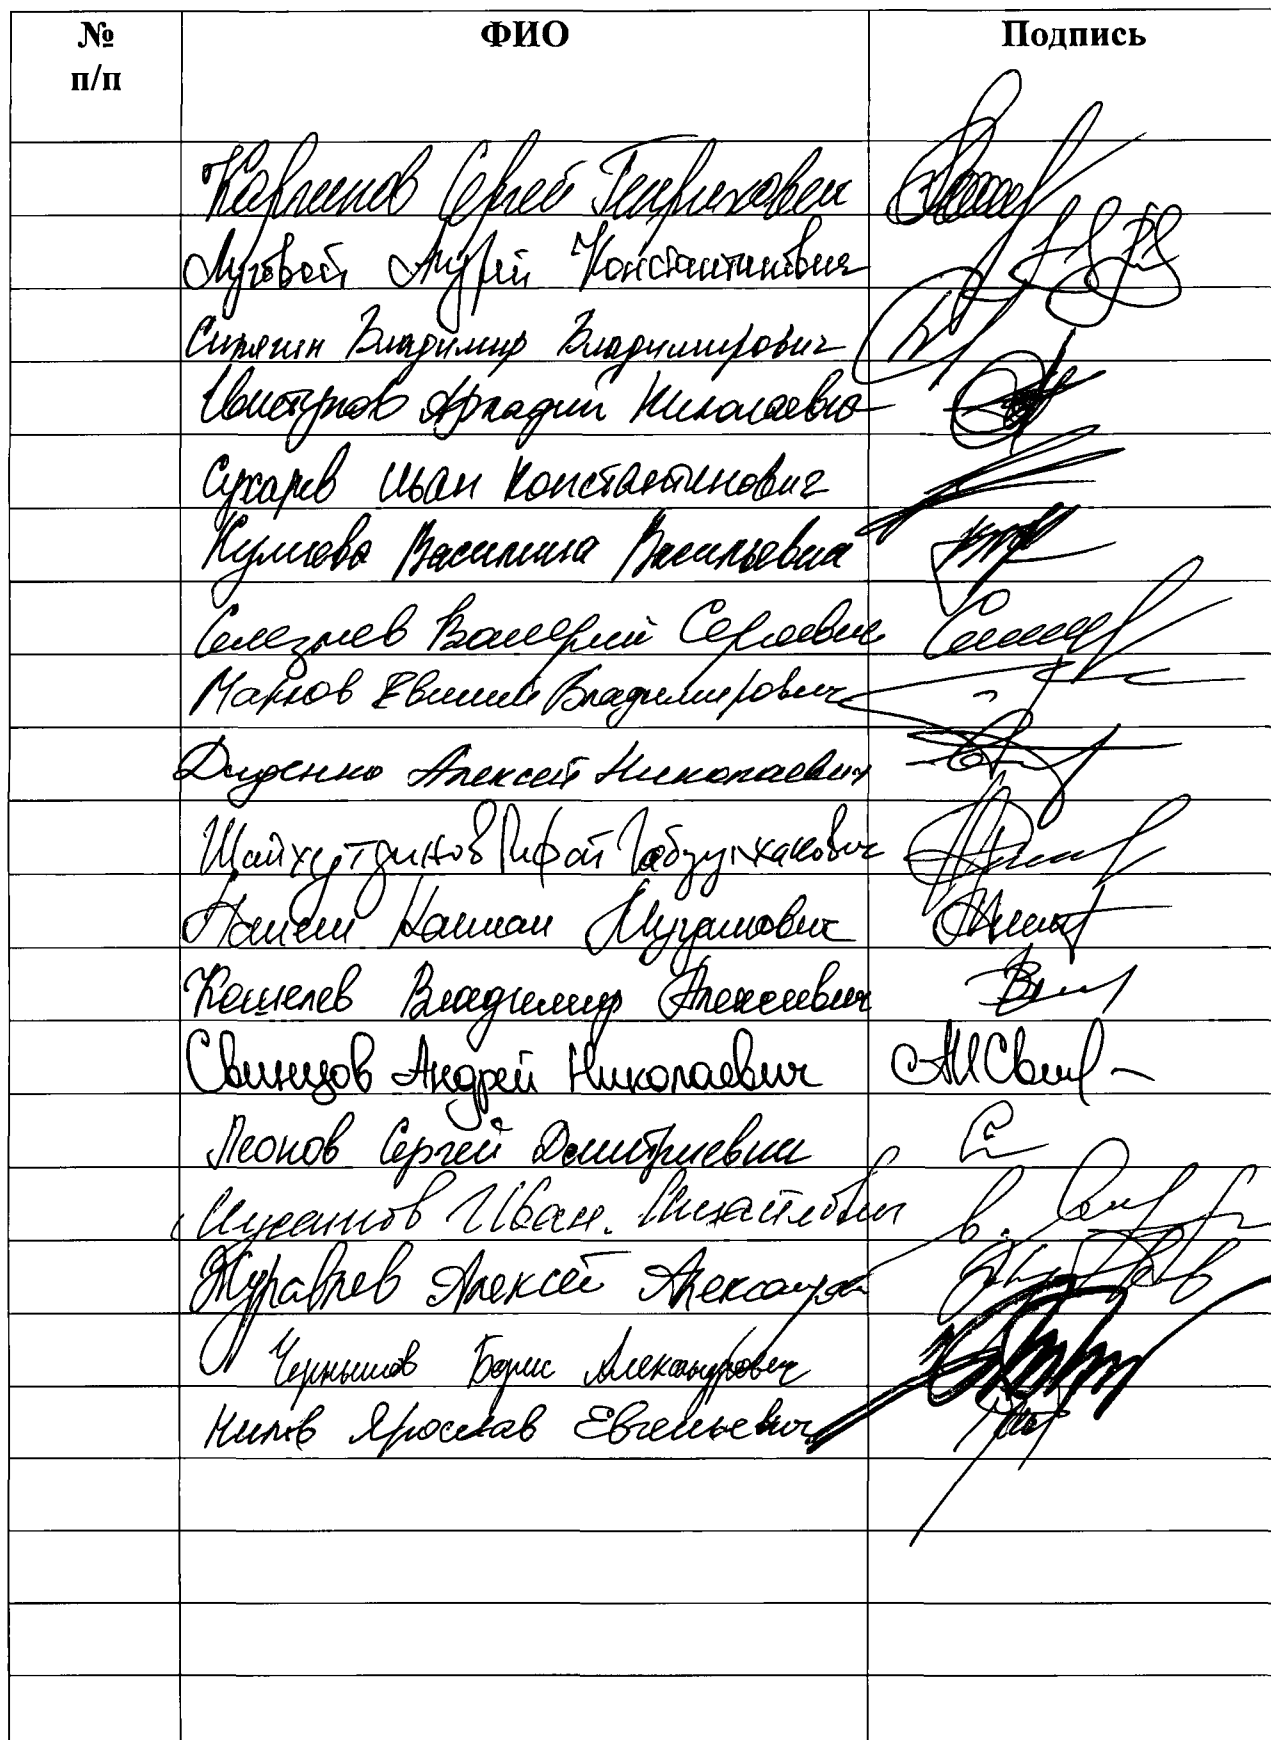 № ФИО Подпись
п/п
Каргинов Сергей Генрихович
Луговой Андрей Константинович
Сипягин Владимир Владимирович
Свистунов Аркадий Николаевич
Сухарев Иван Константинович
Василина Васильевна
Селезнев Валерий Сергеевич
Марков Евгений Владимирович
Диденко Алексей Николаевич
Шайхутдинов Рифат Габдулхакович
Кошелев Владимир Алексеевич
Свинцов Андрей Николаевич
Леонов Сергей Дмитриевич
Мусатов Иван Михайлович
Журавлев Алексей
Чернышов Борис Александрович
Нилов Ярослав Евгеньевич